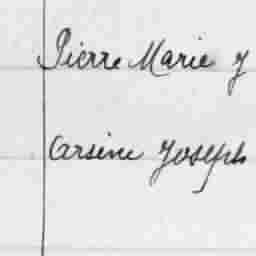 Pierre Marie J
Arsène Joseph